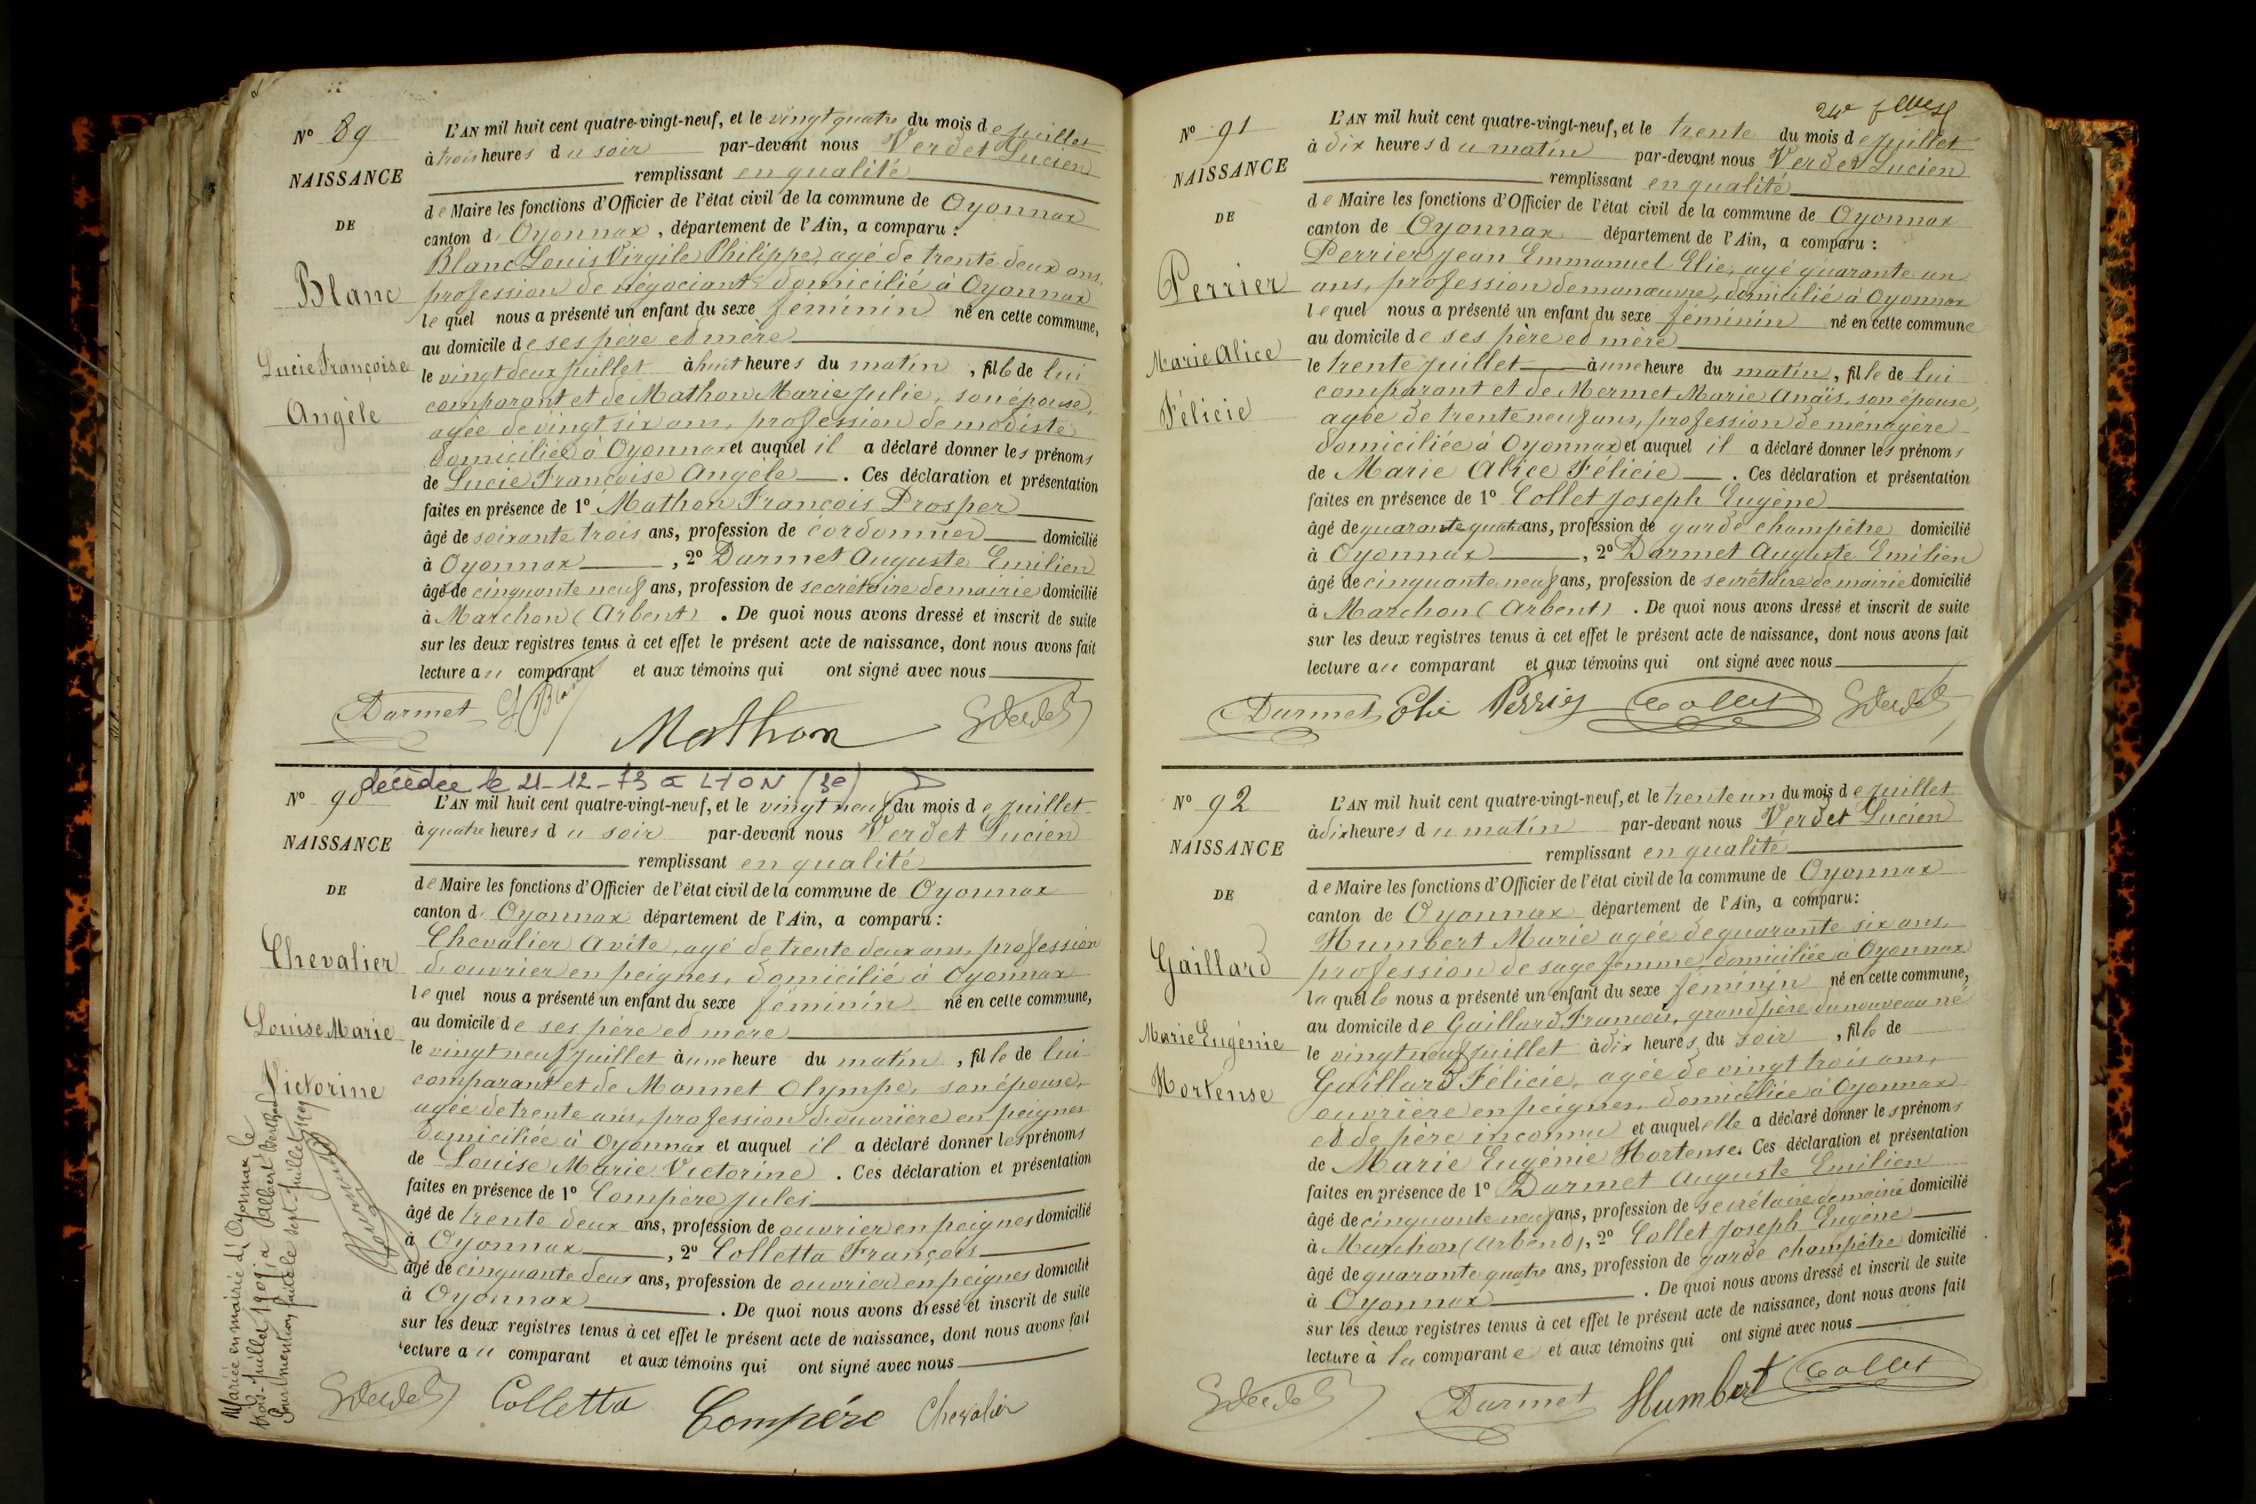 N° 89
NAISSANCE
DE
Blanc
Lucie Françoise
Angèle
L'AN mil huit cent quatre-vingt-neuf, et le vingt quatre du mois de juillet
à trois heures du soir par-devant nous Verdet Lucien
remplissant en qualité
de Maire les fonctions d'Officier de l'état civil de la commune de Oyonnax
canton d' Oyonnax, département de l'Ain, a comparu :
Blanc Louis Virgile Philippe, agé de trente deux ans,
profession de négociant domicilié à Oyonnax
lequel nous a présenté un enfant du sexe féminin né en cette commune,
au domicile de ses père et mère
le vingt deux juillet à huit heures du matin, fille de lui
comparant et de Mathon Marie Julie, son épouse,
agée de vingt six ans, profession de modiste
domiciliée à Oyonnax et auquel il a déclaré donner les prénoms
de Lucie Françoise Angèle. Ces déclaration et présentation
faites en présence de 1° Mathon François Prosper
âgé de soixante trois ans, profession de cordonnier domicilié
à Oyonnax, 2° Darmet Auguste Emilien
âgé de cinquante neuf ans, profession de secrétaire de mairie domicilié
à Marchon (Arbent). De quoi nous avons dressé et inscrit de suite
sur les deux registres tenus à cet effet le présent acte de naissance, dont nous avons fait
lecture au comparant et aux témoins qui ont signé avec nous
Darmet Blanc
Mathon
décédée le 21-12-73 à LYON (3e)
N° 90
NAISSANCE
DE
Chevalier
Louise Marie
Victorine
Mariée en mairie d'Oyonnax le
trois juillet 1909, à Albert
Pour mention faite le sept juillet 1909
L'AN mil huit cent quatre-vingt-neuf, et le vingt neuf du mois de juillet
à quatre heures du soir par-devant nous Verdet Lucien
remplissant en qualité
de Maire les fonctions d'Officier de l'état civil de la commune de Oyonnax
canton d' Oyonnax département de l'Ain, a comparu :
Chevalier Avite, agé de trente deux ans, profession
d'ouvrier en peignes, domicilié à Oyonnax
lequel nous a présenté un enfant du sexe féminin né en cette commune,
au domicile de ses père et mère
le vingt neuf juillet à une heure du matin, fille de lui
comparant et de Monnet Olympe, son épouse,
agée de trente ans, profession d'ouvrière en peignes
domiciliée à Oyonnax et auquel il a déclaré donner les prénoms
de Louise Marie Victorine. Ces déclaration et présentation
faites en présence de 1° Compère Jules
âgé de trente deux ans, profession de ouvrier en peignes domicilié
à Oyonnax, 2° Colletta François
âgé de cinquante deux ans, profession de ouvrier en peignes domicilié
à Oyonnax. De quoi nous avons dressé et inscrit de suite
sur les deux registres tenus à cet effet le présent acte de naissance, dont nous avons fait
lecture au comparant et aux témoins qui ont signé avec nous
Colletta Compére Chevalier
N° 91
NAISSANCE
DE
Perrier
Marie Alice
Félicie
L'AN mil huit cent quatre-vingt-neuf, et le trente du mois de juillet
à dix heures du matin par-devant nous Verdet Lucien
remplissant en qualité
de Maire les fonctions d'Officier de l'état civil de la commune de Oyonnax
canton de Oyonnax département de l'Ain, a comparu :
Perrier Jean Emmanuel Elie, agé quarante un
ans, profession de manœuvre, domicilié à Oyonnax
lequel nous a présenté un enfant du sexe féminin né en cette commune
au domicile de ses père et mère
le trente juillet à une heure du matin, fille de lui
comparant et de Mermet Marie Anaïs, son épouse,
agée de trente neuf ans, profession de ménagère
domiciliée à Oyonnax et auquel il a déclaré donner les prénoms
de Marie Alice Félicie. Ces déclaration et présentation
faites en présence de 1° Collet Joseph Eugène
âgé de quarante quatre ans, profession de garde champêtre domicilié
à Oyonnax, 2° Darmet Auguste Emilien
âgé de cinquante neuf ans, profession de secrétaire de mairie domicilié
à Marchon (Arbent). De quoi nous avons dressé et inscrit de suite
sur les deux registres tenus à cet effet le présent acte de naissance, dont nous avons fait
lecture au comparant et aux témoins qui ont signé avec nous
Darmet Elie Perrier Collet
N° 92
NAISSANCE
DE
Gaillard
Marie Eugénie
Hortense
L'AN mil huit cent quatre-vingt-neuf, et le trente un du mois de juillet
à dix heures du matin par-devant nous Verdet Lucien
remplissant en qualité
de Maire les fonctions d'Officier de l'état civil de la commune de Oyonnax
canton de Oyonnax département de l'Ain, a comparu :
Humbert Marie agée de quarante six ans,
profession de sage femme, domiciliée à Oyonnax
laquelle nous a présenté un enfant du sexe féminin né en cette commune,
au domicile de Gaillard François, grand père du nouveau né
le vingt neuf juillet à dix heures du soir, fille de
Gaillard Félicie, agée de vingt trois ans,
ouvrière en peignes, domiciliée à Oyonnax
et de père inconnu et auquel elle a déclaré donner les prénoms
de Marie Eugénie Hortense. Ces déclaration et présentation
faites en présence de 1° Darmet Auguste Emilien
âgé de cinquante neuf ans, profession de secrétaire de mairie domicilié
à Marchon (Arbent), 2° Collet Joseph Eugène
âgé de quarante quatre ans, profession de garde champêtre domicilié
à Oyonnax. De quoi nous avons dressé et inscrit de suite
sur les deux registres tenus à cet effet le présent acte de naissance, dont nous avons fait
lecture à la comparante et aux témoins qui ont signé avec nous
Darmet Humbert Collet